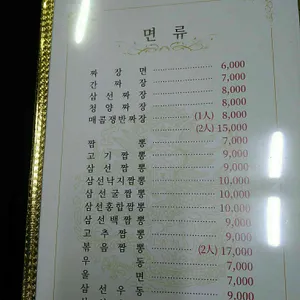 면 류
짜 장 면 6,000
간 짜 장 7,000
삼 선 짜 장 8,000
청 양 짜 장 8,000
매콤쟁반짜장 (1人) 8,000
(2人) 15,000
짬 뽕 7,000
고 기 짬 뽕 9,000
삼 선 짬 뽕 9,000
삼선낙지짬뽕 10,000
삼선굴짬뽕 10,000
삼선홍합짬뽕 10,000
삼 선 백 짬 뽕 9,000
고 추 짬 뽕 9,000
볶 음 짬 뽕 (2人) 17,000
우 동 7,000
울 면 7,000
삼 선 우 동 9,000